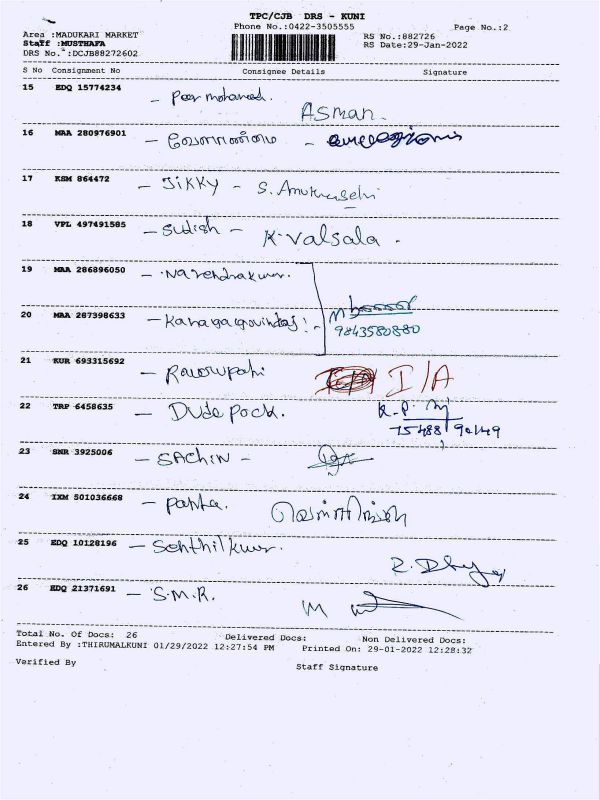 TPC/CJB DRS - KUNI
Phone No.:0422-3505555 Page No.:2
Area :MADUKARI MARKET RS No.:882726
Staff :MUSTHAFA RS Date:29-Jan-2022
DRS No.:DCJB88272602
S No Consignment No Consignee Details Signature
15 EDQ 15774234 - Peer mohamed.
ASMAN.
16 MAA 280976901 -
17 KSM 864472 - JIKKY - S.
18 VPL 497491585 - Sudish - K. Valsala.
19 MAA 286896050 - Narendrakumar.
20 MAA 287398633 - Kanagagovindaj:-
9843580880
21 KUR 693315692 - I/A
22 TRP 6458635 - Dude Pock. K.P.
23 SNR 3925006 - SACHIN -
24 IXM 501036668 -
25 EDQ 10128196 - Senthilkumar.
26 EDQ 21371691 - S.M.R.
Total No. Of Docs: 26 Delivered Docs: Non Delivered Docs:
Entered By :THIRUMALKUNI 01/29/2022 12:27:54 PM Printed On: 29-01-2022 12:28:32
Verified By Staff Signature